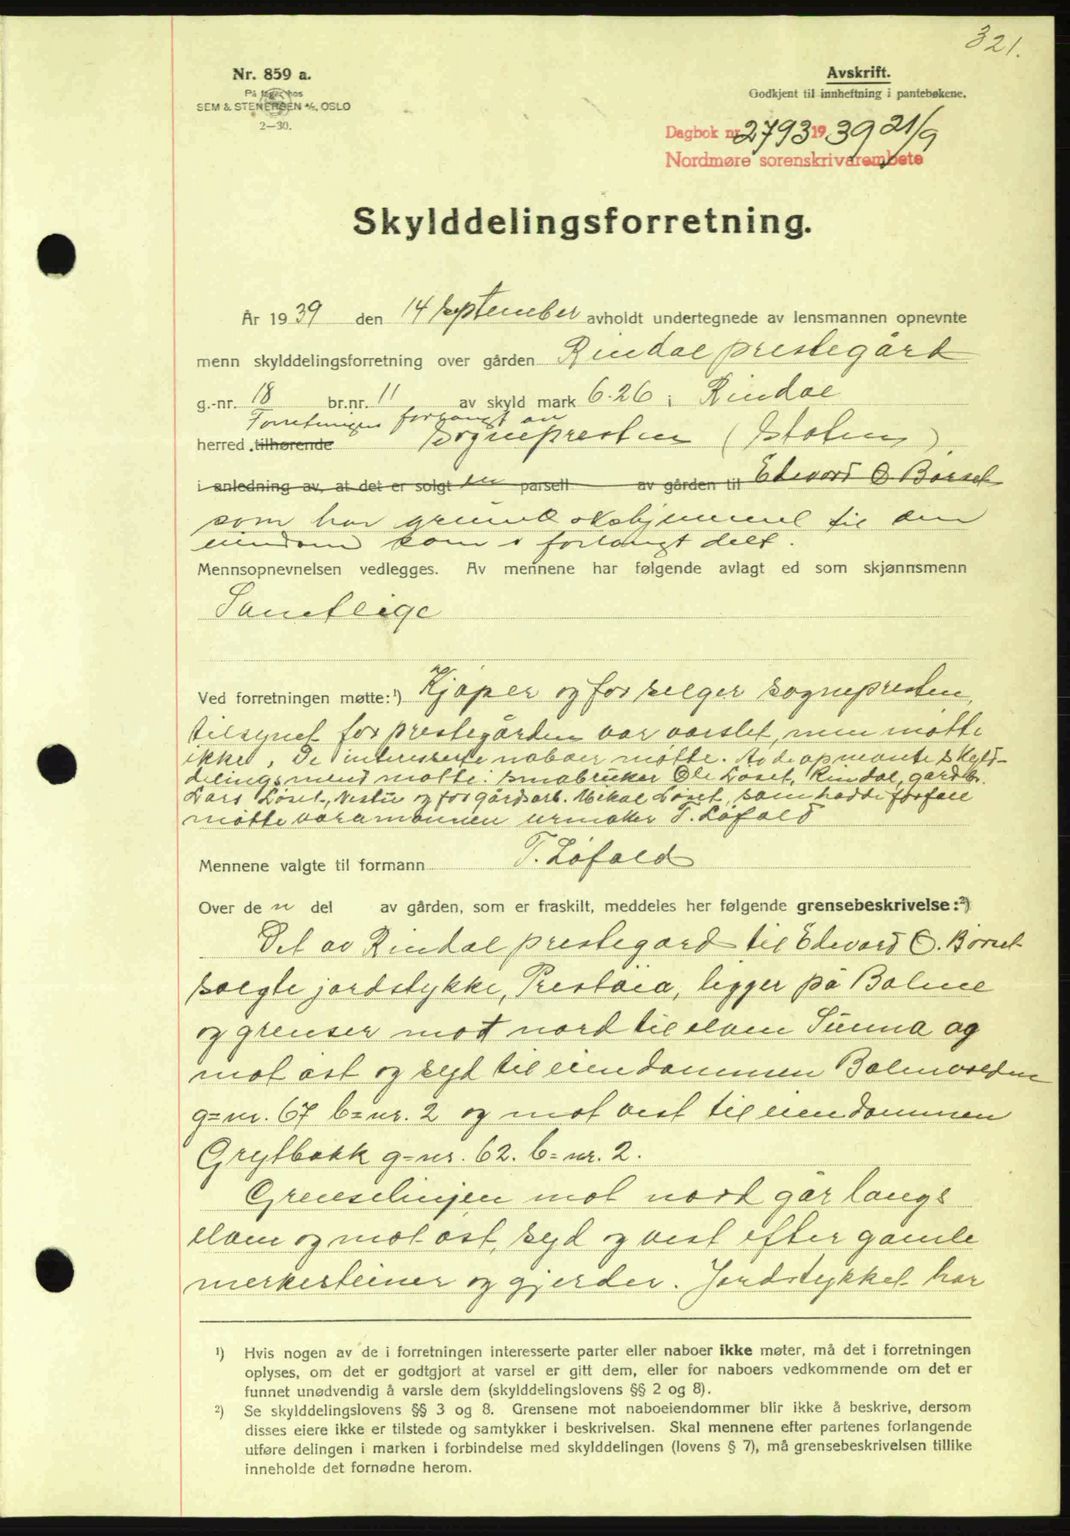 321.
Nr. 859 a.
På lager hos
SEM & STENERSEN A/S, OSLO
2—30.
Avskrift.
Godkjent til innheftning i pantebøkene.
Dagbok nr. 2793 19 39 21/9
Nordmøre sorenskrivarembete
Skylddelingsforretning.
År 19 39 den 14 september avholdt undertegnede av lensmannen opnevnte
menn skylddelingsforretning over gården Rindal prestegård
g.-nr. 18 br.nr. 11 av skyld mark 6.26 i Rindal
Forretningen forlangt av
herred tilhørende Sognepresten (Staten)
i anledning av, at det er solgt en parsell av gården til Edvard O Børset
som har grunnbokshjemmel til den
eiendom som er forlangt delt.
Mennsopnevnelsen vedlegges. Av mennene har følgende avlagt ed som skjønnsmenn
Samtlige
Ved forretningen møtte:¹) Kjøper og for selger sognepresten,
tilsynet for prestegården var varslet, men møtte
ikke. De interesserte naboer møtte. Av de opnevnte skyld-
delingsmenn møtte: småbruker Ole Løset, Rindal, gardbr.
Lars Løset, Vestre og for gårdsarb. Mikal Løset, som hadde forfall
møtte varamannen urmaker T. Løfald
Mennene valgte til formann T. Løfald
Over de n del av gården, som er fraskilt, meddeles her følgende grensebeskrivelse:²)
Det av Rindal prestegard til Edvard O. Børset
solgte jordstykke, Prestøia, ligger på Bolme
og grenser mot nord til elven Surna og
mot øst og syd til eiendommen Bolmvolden
g=nr. 67 b=nr. 2 og mot vest til eiendommen
Grytbakk g=nr. 62. b=nr. 2.
Grenselinjen mot nord går langs
elven og mot øst, syd og vest efter gamle
merkesteiner og gjerder. Jordstykket har
¹) Hvis nogen av de i forretningen interesserte parter eller naboer ikke møter, må det i forretningen
oplyses, om det er godtgjort at varsel er gitt dem, eller for naboers vedkommende om det er
funnet unødvendig å varsle dem (skylddelingslovens §§ 2 og 8).
²) Se skylddelingslovens §§ 3 og 8. Grensene mot naboeiendommer blir ikke å beskrive, dersom
disses eiere ikke er tilstede og samtykker i beskrivelsen. Skal mennene efter partenes forlangende
utføre delingen i marken i forbindelse med skylddelingen (lovens § 7), må grensebeskrivelsen tillike
inneholde det fornødne herom.